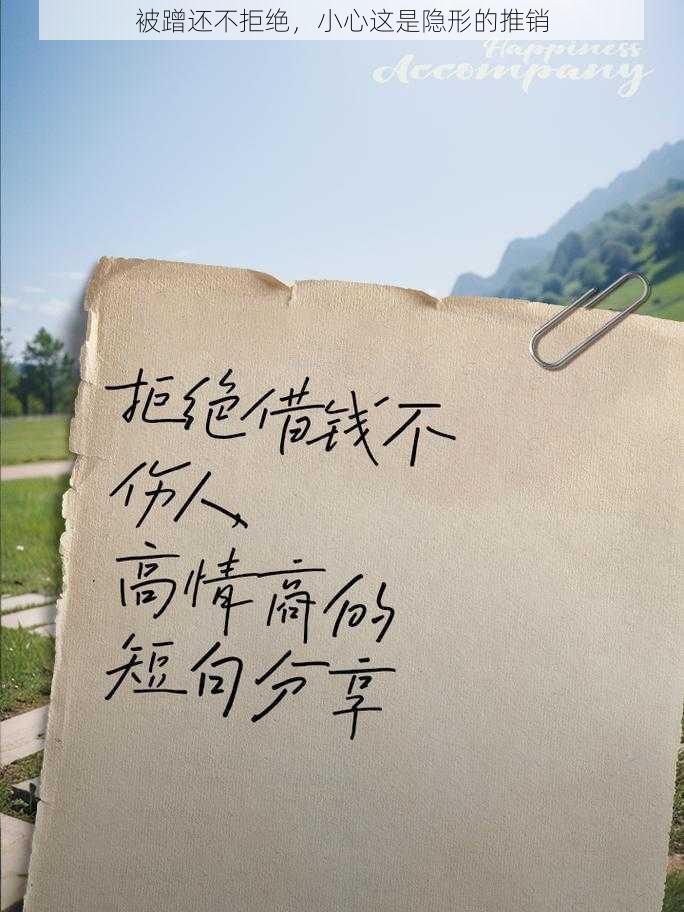 被蹭还不拒绝，小心这是隐形的推销
Happiness
Accompany
拒绝借钱不
伤人，
高情商的
短句分享